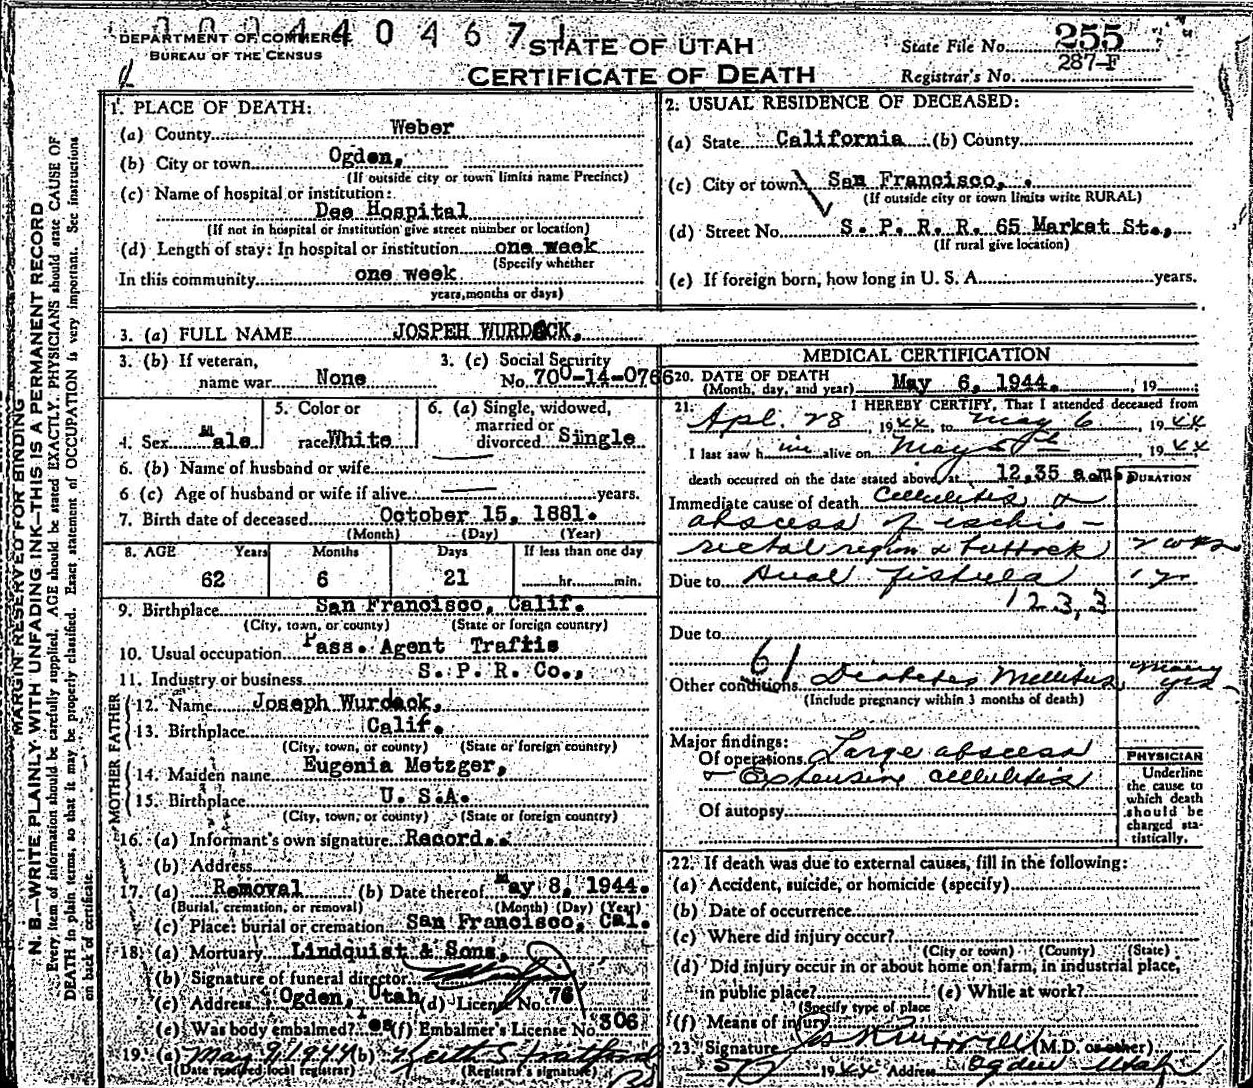 DEPARTMENT OF COMMERCE
BUREAU OF THE CENSUS
STATE OF UTAH
CERTIFICATE OF DEATH
State File No. 255
287-F
Registrar's No.
MARGIN RESERVED FOR BINDING
N. B.—WRITE PLAINLY, WITH UNFADING INK—THIS IS A PERMANENT RECORD
Every item of information should be carefully supplied. AGE should be stated EXACTLY. PHYSICIANS should state CAUSE OF
DEATH in plain terms, so that it may be properly classified. Exact statement of OCCUPATION is very important. See instructions
on back of certificate.
1. PLACE OF DEATH:
(a) County Weber
(b) City or town Ogden,
(If outside city or town limits name Precinct)
(c) Name of hospital or institution:
Dee Hospital
(If not in hospital or institution give street number or location)
(d) Length of stay: In hospital or institution one week
(Specify whether
In this community one week
years, months or days)
2. USUAL RESIDENCE OF DECEASED:
(a) State California (b) County
(c) City or town San Francisco,
(If outside city or town limits write RURAL)
(d) Street No. S. P. R. R. 65 Market St.,
(If rural give location)
(e) If foreign born, how long in U. S. A. years.
3. (a) FULL NAME JOSPEH WURDACK,
3. (b) If veteran, name war None
3. (c) Social Security No. 700-14-0766
4. Sex Male
5. Color or race White
6. (a) Single, widowed, married or divorced Single
6. (b) Name of husband or wife
6 (c) Age of husband or wife if alive years.
7. Birth date of deceased October 15, 1881.
(Month) (Day) (Year)
8. AGE Years Months Days If less than one day
62 6 21 hr. min.
9. Birthplace San Francisco, Calif.
(City, town, or county) (State or foreign country)
10. Usual occupation Pass. Agent Traffis
11. Industry or business S. P. R. Co.,
FATHER
12. Name Joseph Wurdack,
13. Birthplace Calif.
(City, town, or county) (State or foreign country)
MOTHER
14. Maiden name Eugenia Metzger,
15. Birthplace U. S.A.
(City, town, or county) (State or foreign country)
16. (a) Informant's own signature Record..
(b) Address
17. (a) Removal (b) Date thereof May 8, 1944.
(Burial, cremation, or removal) (Month) (Day) (Year)
(c) Place: burial or cremation San Francisco, Cal.
18. (a) Mortuary Lindquist & Sons,
(b) Signature of funeral director
(c) Address Ogden, Utah (d) License No. 76
(e) Was body embalmed? (f) Embalmer's License No. 306
19. (a) May 9, 1944 (b) Keith Stratford
(Date received local registrar) (Registrar's signature)
MEDICAL CERTIFICATION
20. DATE OF DEATH
(Month, day, and year) May 6, 1944. , 19
21. I HEREBY CERTIFY, That I attended deceased from
Apl. 28, 1944, to May 6, 1944
I last saw him alive on May 5th, 1944
death occurred on the date stated above, at 12.35 a.m. DURATION
Immediate cause of death Cellulitis &
abscess of ischio-
rectal region & buttock 2 wks
Due to Anal fistula 1 yr
123,3
Due to
61
Other conditions Diabetes Mellitus Many yrs
(Include pregnancy within 3 months of death)
Major findings:
Of operations Large abscess
& Extensive cellulitis
Of autopsy
PHYSICIAN
Underline
the cause to
which death
should be
charged sta-
tistically.
22. If death was due to external causes, fill in the following:
(a) Accident, suicide, or homicide (specify)
(b) Date of occurrence
(c) Where did injury occur?
(City or town) (County) (State)
(d) Did injury occur in or about home on farm, in industrial place,
in public place? (e) While at work?
(Specify type of place
(f) Means of injury
23. Signature (M.D. or other)
1944 Address Ogden Utah